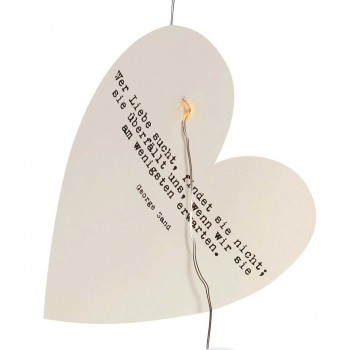 Wer Liebe sucht, findet sie nicht;
sie überfällt uns, wenn wir sie
am wenigsten erwarten.
George Sand